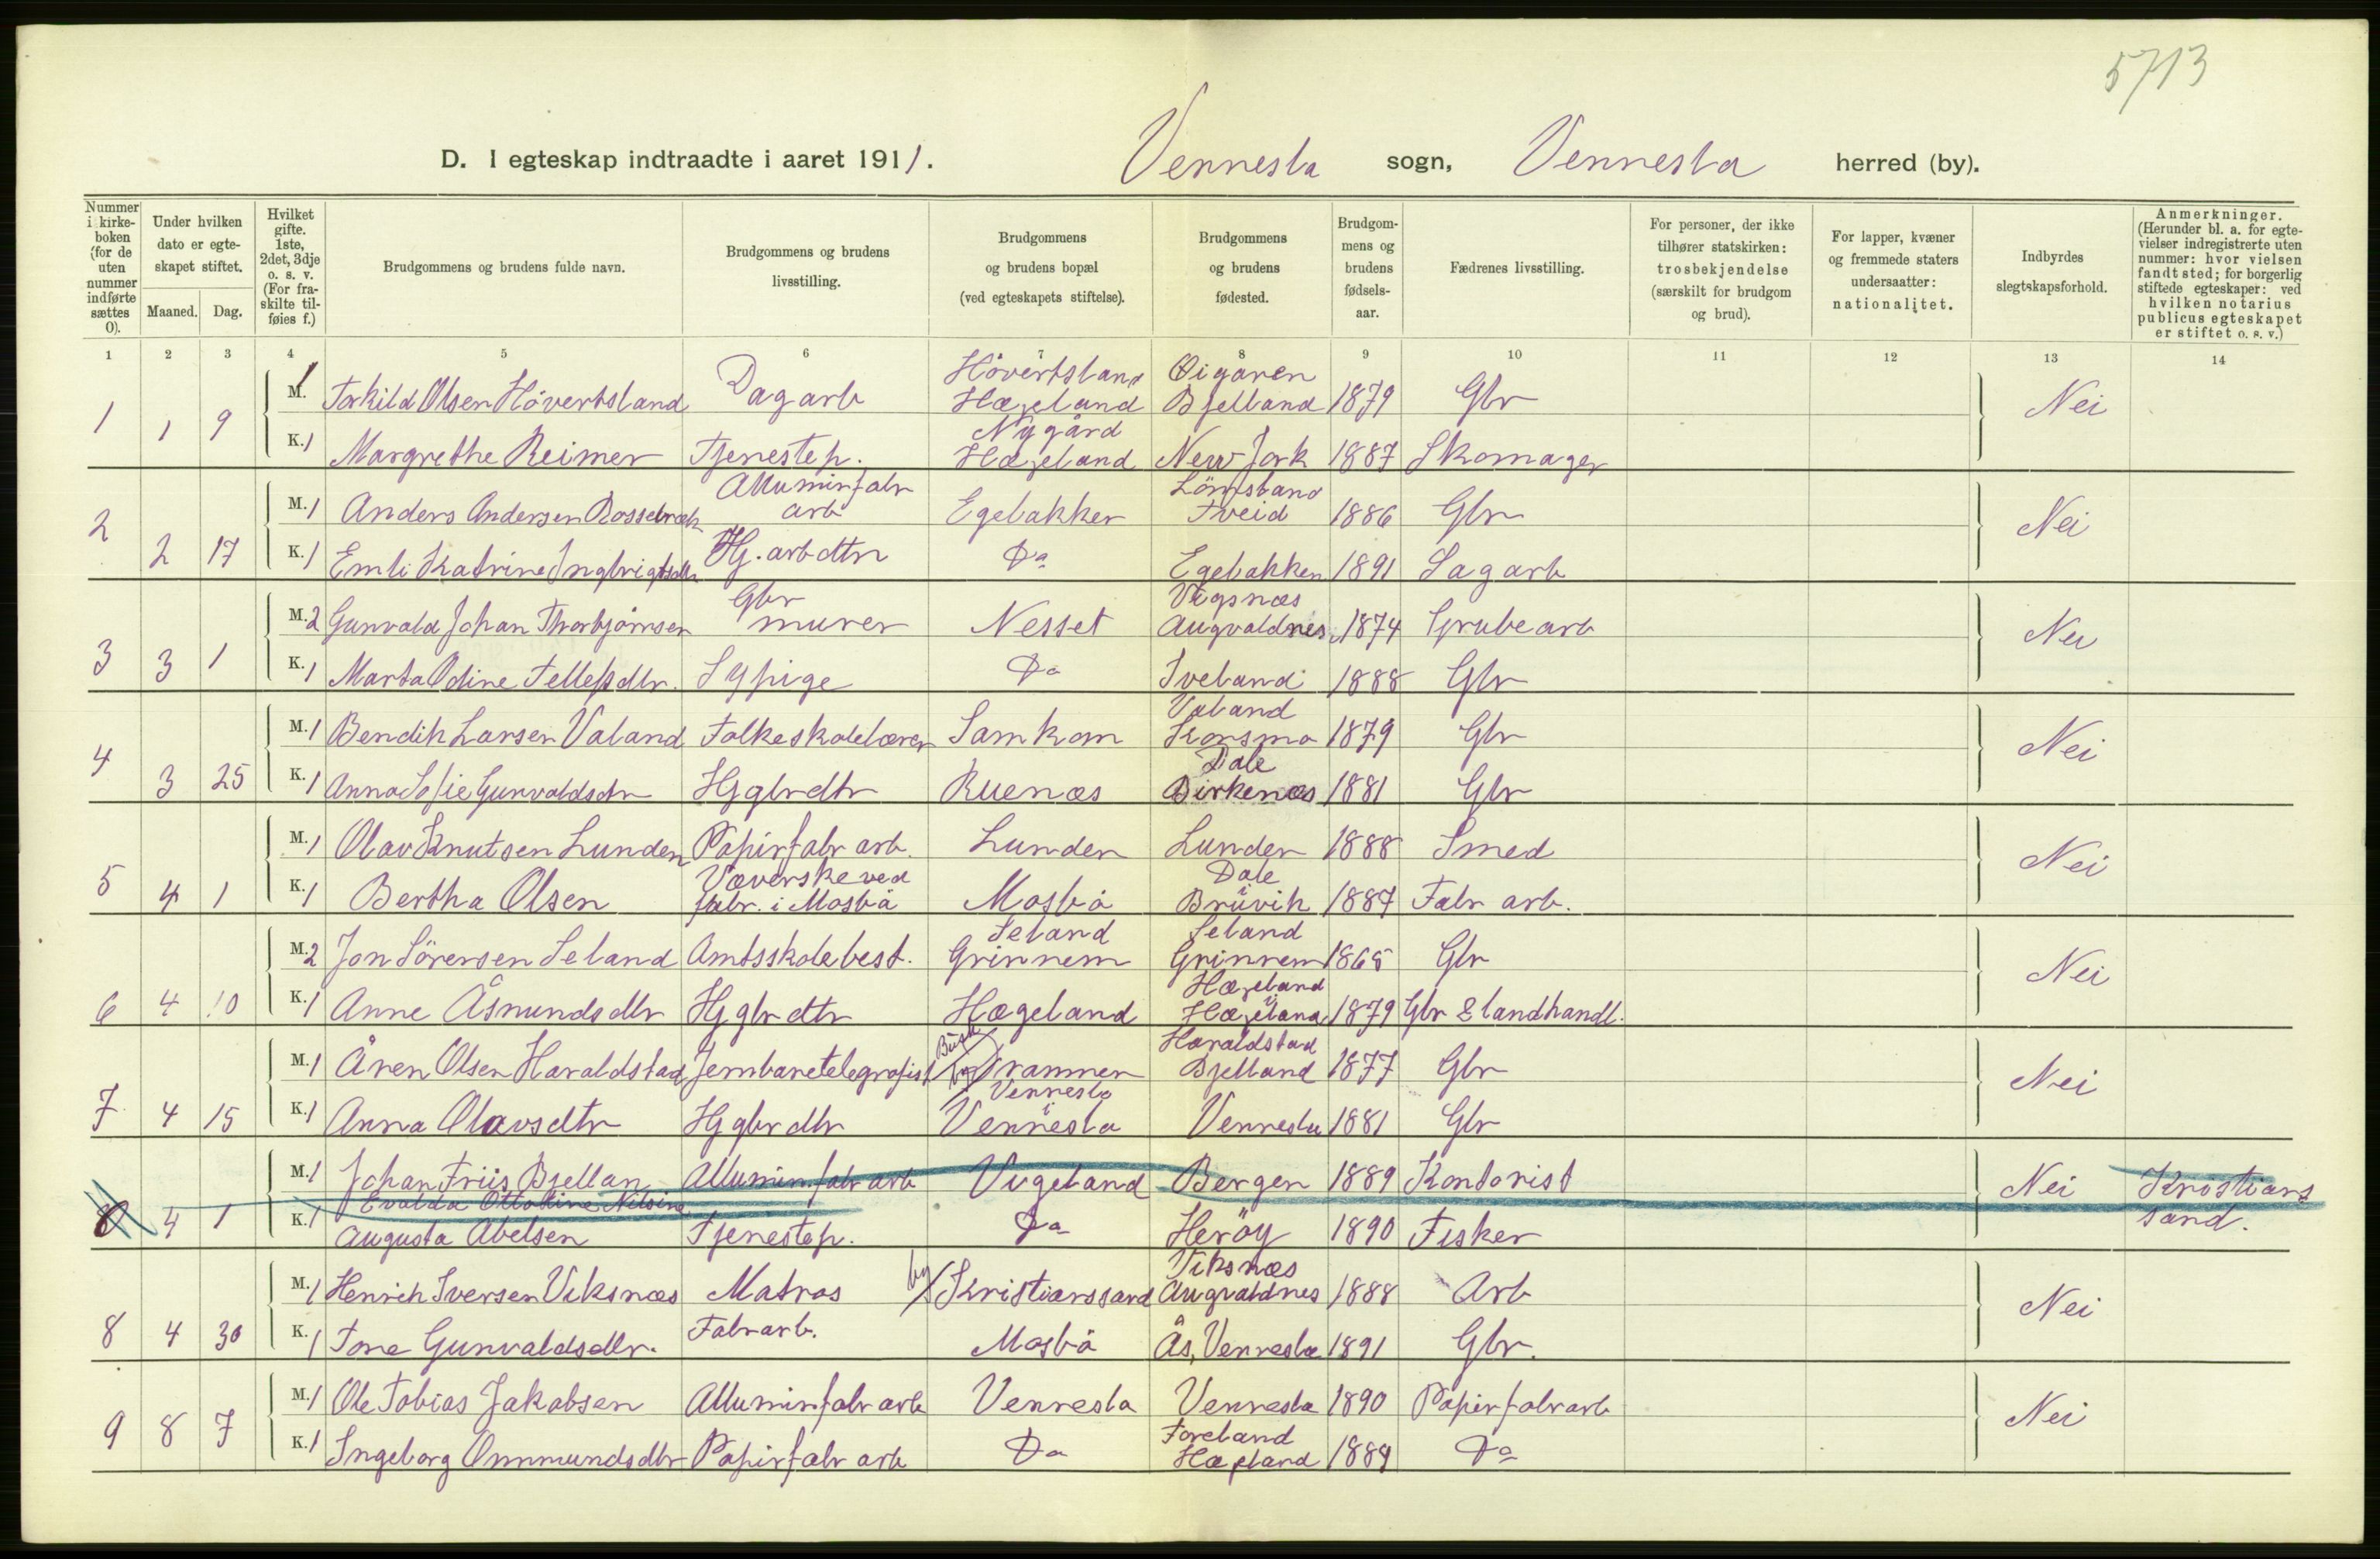 5713
D. I egteskap indtraadte i aaret 1911. Vennesla sogn, Vennesla herred (by).
Nummer i kirke-boken (for de uten nummer indførte sættes 0).
Under hvilken dato er egte-skapet stiftet.
Maaned. Dag.
Hvilket gifte. 1ste, 2det, 3dje o. s. v. (For fra-skilte til-føies f.)
Brudgommens og brudens fulde navn.
Brudgommens og brudens livsstilling.
Brudgommens og brudens bopæl (ved egteskapets stiftelse).
Brudgommens og brudens fødested.
Brudgom-mens og brudens fødsels-aar.
Fædrenes livsstilling.
For personer, der ikke tilhører statskirken: trosbekjendelse (særskilt for brudgom og brud).
For lapper, kvæner og fremmede staters undersaatter: nationalitet.
Indbyrdes slegtskapsforhold.
Anmerkninger. (Herunder bl. a. for egte-vielser indregistrerte uten nummer: hvor vielsen fandt sted; for borgerlig stiftede egteskaper: ved hvilken notarius publicus egteskapet er stiftet o. s. v.)
1 2 3 4 5 6 7 8 9 10 11 12 13 14
1 1 9 M. 1 Torkild Olsen Hövertsland Dagarb Hövertsland Hægeland Øigaren Bjelland 1879 Gbr Nei
K. 1 Margrethe Reimer Tjenestep. Nygård Hægeland New Jork 1887 Skomager
2 2 17 M. 1 Anders Andersen Rossebræk Alluminfabr arb Egebakken Lömsland Tveid 1886 Gbr Nei
K. 1 Emli Katrine Ingbrigtsdtr Hj. arb dtr Do Egebakken 1891 Sagarb
3 3 1 M. 2 Gunvald Johan Thorbjörnsen Gbr murer Nesset Vigsnæs Augvaldnes 1874 Grubearb Nei
K. 1 Marta Odine Tellefsdtr. Sypige Do Iveland 1888 Gbr
4 3 25 M. 1 Bendik Larsen Valand Folkeskolelærer Samkom Valand Konsmo 1879 Gbr Nei
K. 1 Anna Sofie Gunvaldsdtr Hj gbr dtr Ruenæs Dale Birkenæs 1881 Gbr
5 4 1 M. 1 Olav Knutsen Lunden Papirfabr arb. Lunden Lunden 1888 Smed Nei
K. 1 Bertha Olsen Væverske ved fabr. i Mosbå Mosbå Dale Bruvik 1887 Fabr arb.
6 4 10 M. 2 Jon Sörensen Seland Amtsskolebest. Seland Grinnem Seland Grinnem 1865 Gbr Nei
K. 1 Anne Åsmundsdtr Hj gbr dtr Hægeland Hægeland Hægeland 1879 Gbr & landhandl.
7 4 15 M. 1 Åren Olsen Haraldstad Jernbanetelegrafist Busk by Drammen Haraldstad Bjelland 1877 Gbr Nei
K. 1 Anna Olavsdtr Hj gbr dtr Vennesla Vennesla Vennesla 1881 Gbr
0 4 1 M. 1 Johan Friis Bjellan Alluminfabr arb Vigeland Bergen 1889 Kontorist Nei Kristians sand.
K. 1 Evalda Ottoline Nilsine Augusta Abelsen Tjenestep. Do Heröy 1890 Fisker
8 4 30 M. 1 Henrik Iversen Viksnæs Matros by Kristianssand Viksnæs Augvaldnes 1888 Arb Nei
K. 1 Tone Gunvaldsdtr. Fabrarb. Mosbå Ås, Vennesla 1891 Gbr.
9 8 7 M. 1 Ole Tobias Jakobsen Alluminfabr arb Vennesla Vennesla 1890 Papirfabrarb Nei
K. 1 Ingeborg Ommundsdtr Papirfabr arb Do Foreland Hægeland 1889 Do